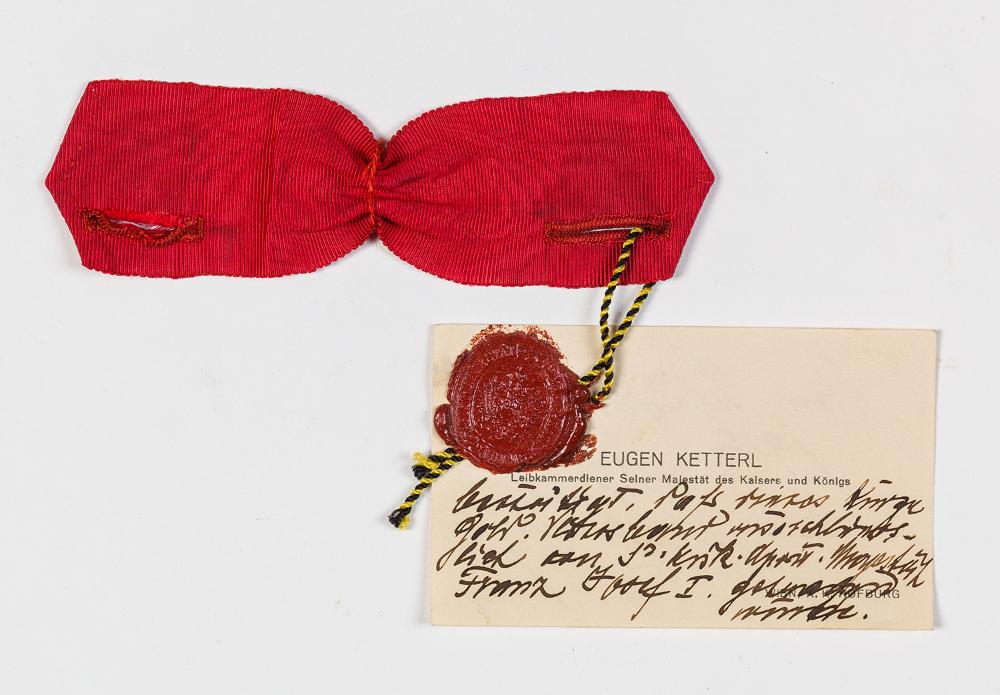 EUGEN KETTERL
Leibkammerdiener Seiner Majestät des Kaisers und Königs
bestätigt, daß dieses kurze
Gold. Vliesband
von Sr. k.u.k. Apost. Majestät
Franz Josef I. getragen
wurde.
WIEN, K. K. HOFBURG